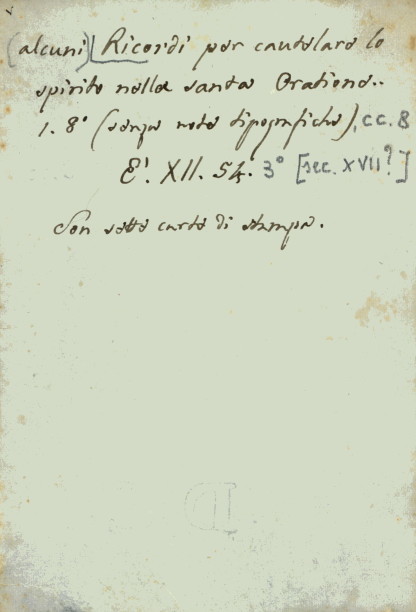 (alcuni) Ricordi per cautelare lo
spirito nella santa Oratione..
1. 8° (senza note tipografiche), cc. 8
E'. XII. 54. 3° [sec. XVII?]
Son sette carte di stampa.